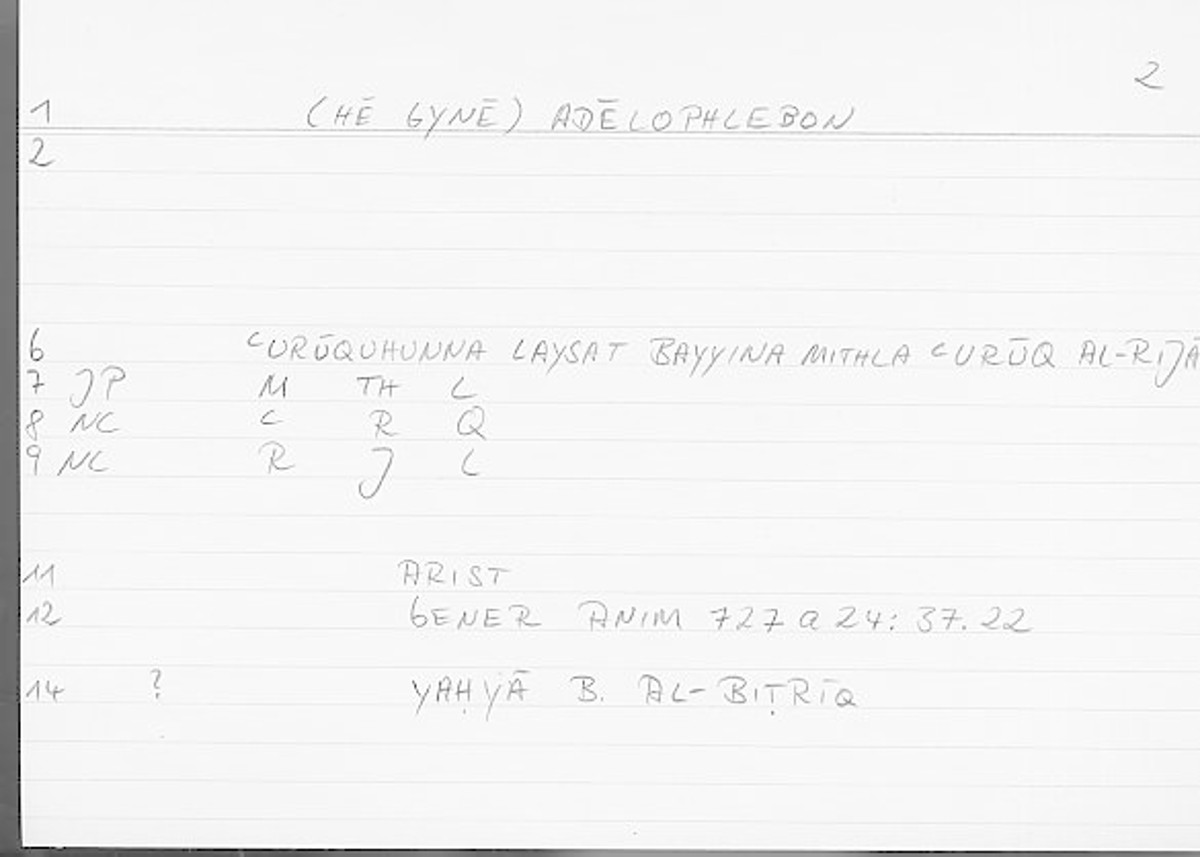 2
1 (HĒ GYNĒ) ADĒLOPHLEBON
2
6 ʿURŪQUHUNNA LAYSAT BAYYINA MITHLA ʿURŪQ AL-RIJĀ
7 JP M TH L
8 NC ʿ R Q
9 NC R J L
11 ARIST
12 GENER ANIM 727 a 24: 37.22
14 ? YAḤYĀ B. AL-BIṬRĪQ